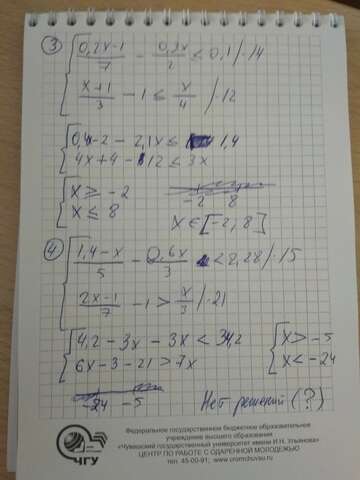 ③ { (0,2x-1)/7 - 0,3x/2 ≤ 0,1 /·14
(x+1)/3 - 1 ≤ x/4 /·12
{ 0,4x-2 - 2,1x ≤ 1,4
4x+4 - 12 ≤ 3x
{ x ≥ -2
x ≤ 8
-2 8
x ∈ [-2, 8]
④ { (1,4-x)/5 - 0,6x/3 < 2,28 /·15
(2x-1)/7 - 1 > x/3 /·21
{ 4,2 - 3x - 3x < 34,2
6x - 3 - 21 > 7x
{ x > -5
x < -24
-24 -5
Нет решений (?)
Федеральное государственное бюджетное образовательное
учреждение высшего образования
«Чувашский государственный университет имени И.Н. Ульянова»
ЦЕНТР ПО РАБОТЕ С ОДАРЕННОЙ МОЛОДЕЖЬЮ
тел. 45-00-91;
ЧГУ